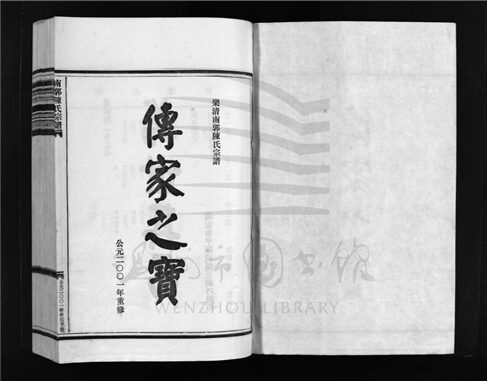 樂清南郭陳氏宗譜
傳家之寶
公元二〇〇一年重修
南郭陳氏宗譜
溫州市圖書館
WENZHOU LIBRARY